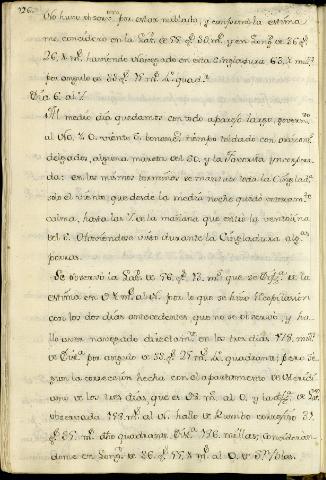 126.
No huvo observ.on por estar nublado, y conforme la estima
me considero en la Lat. de 55. g.s 50. m.s y en Long.d de 36. g.s
26. m.s haviendo navegado en esta Cingladura 63. mill.s
por angulo de 55. g.s 71. m.s quad.te
Dia 6. al 7.
Al medio dia quedamos con todo aparejo largo, governan.do
al NO. ¼ O. viento E. bonancible, tiempo toldado con
delgados, alguna mareta del SO. y la Favorita incorpora-
da: en los mismos terminos se mantuvo toda la Cinglad.a
solo el viento, que desde la media noche quedó enteram.te
calma, hasta las 7. de la mañana que entró la ventolina
del E. Haviendose visto durante la Cingladura alg.as
porras.
Se observó la Lat. de 56. g.s 13. m.s que se dif.a de la
estima en m.s al N. por lo que se hizo Recopilacion
con los dos dias antecedentes que no se observó, y ha-
llo aver navegado directam.te en los tres dias 178. m.s
de Dist.a por angulo de 55. g.s 25. m.s quadrante; pero se-
gun la correccion hecha con el apartamento de Meridi-
ano de los tres dias, que es 98. m.s al O. y la dif.a de Lat.
observada 158. m.s al N. hallo de Rumbo corregido 31.
g.s 35. m.s dho quadrante Dist.a 186. millas, consideran-
dome en Long.d de 36. g.s 55. m.s al O. de S.n Blas.